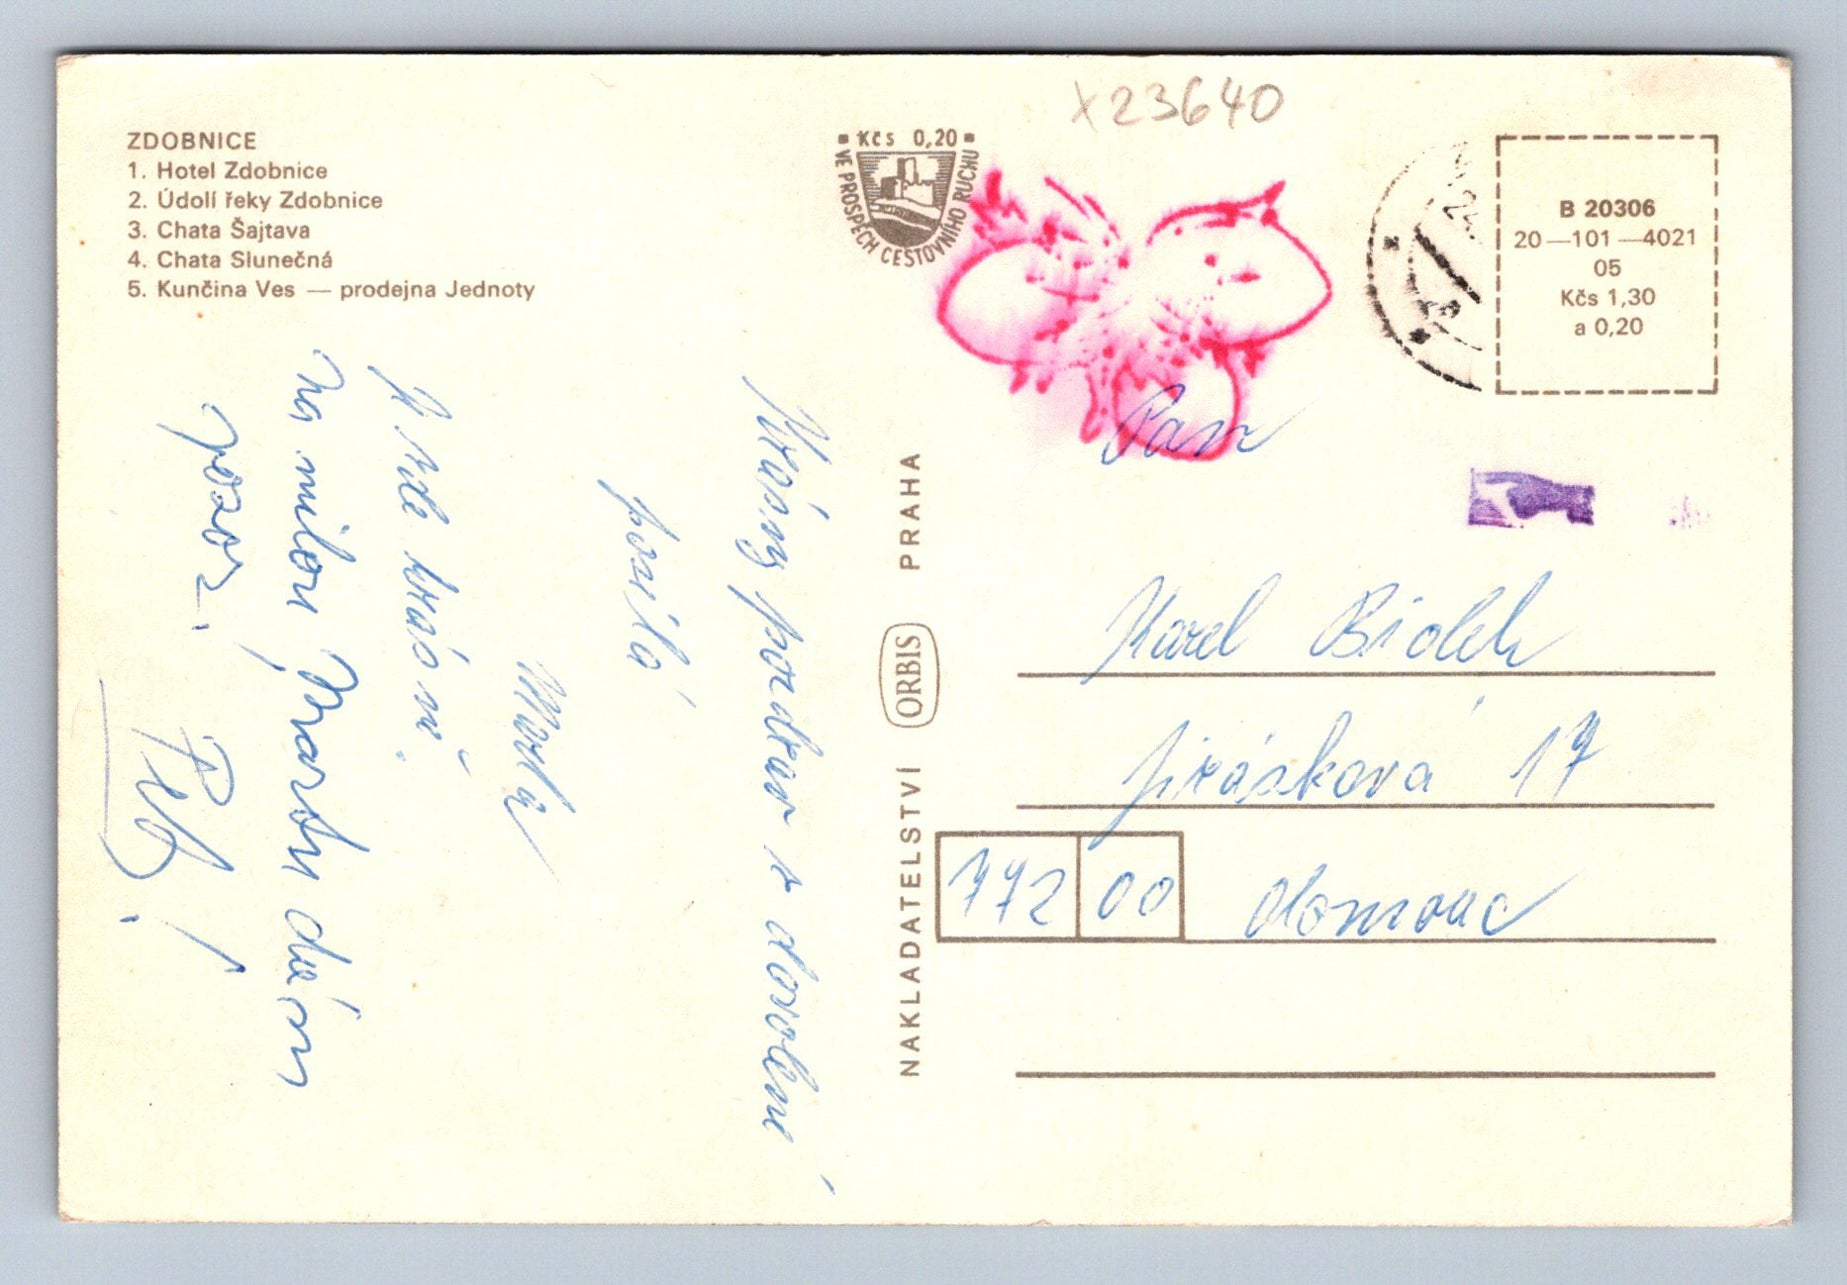 x23640
ZDOBNICE
1. Hotel Zdobnice
2. Údolí řeky Zdobnice
3. Chata Šajtava
4. Chata Slunečná
5. Kunčina Ves — prodejna Jednoty
Kčs 0,20
VE PROSPĚCH CESTOVNÍHO RUCHU
B 20306
20—101—4021
05
Kčs 1,30
a 0,20
Krásný pozdrav z dovolené
posílá
Je zde krásně.
Na milou Martu dám
pozor.
Petr!
NAKLADATELSTVÍ ORBIS PRAHA
Pan
Karel Bidlek
Jiráskova 17
772 00 Olomouc